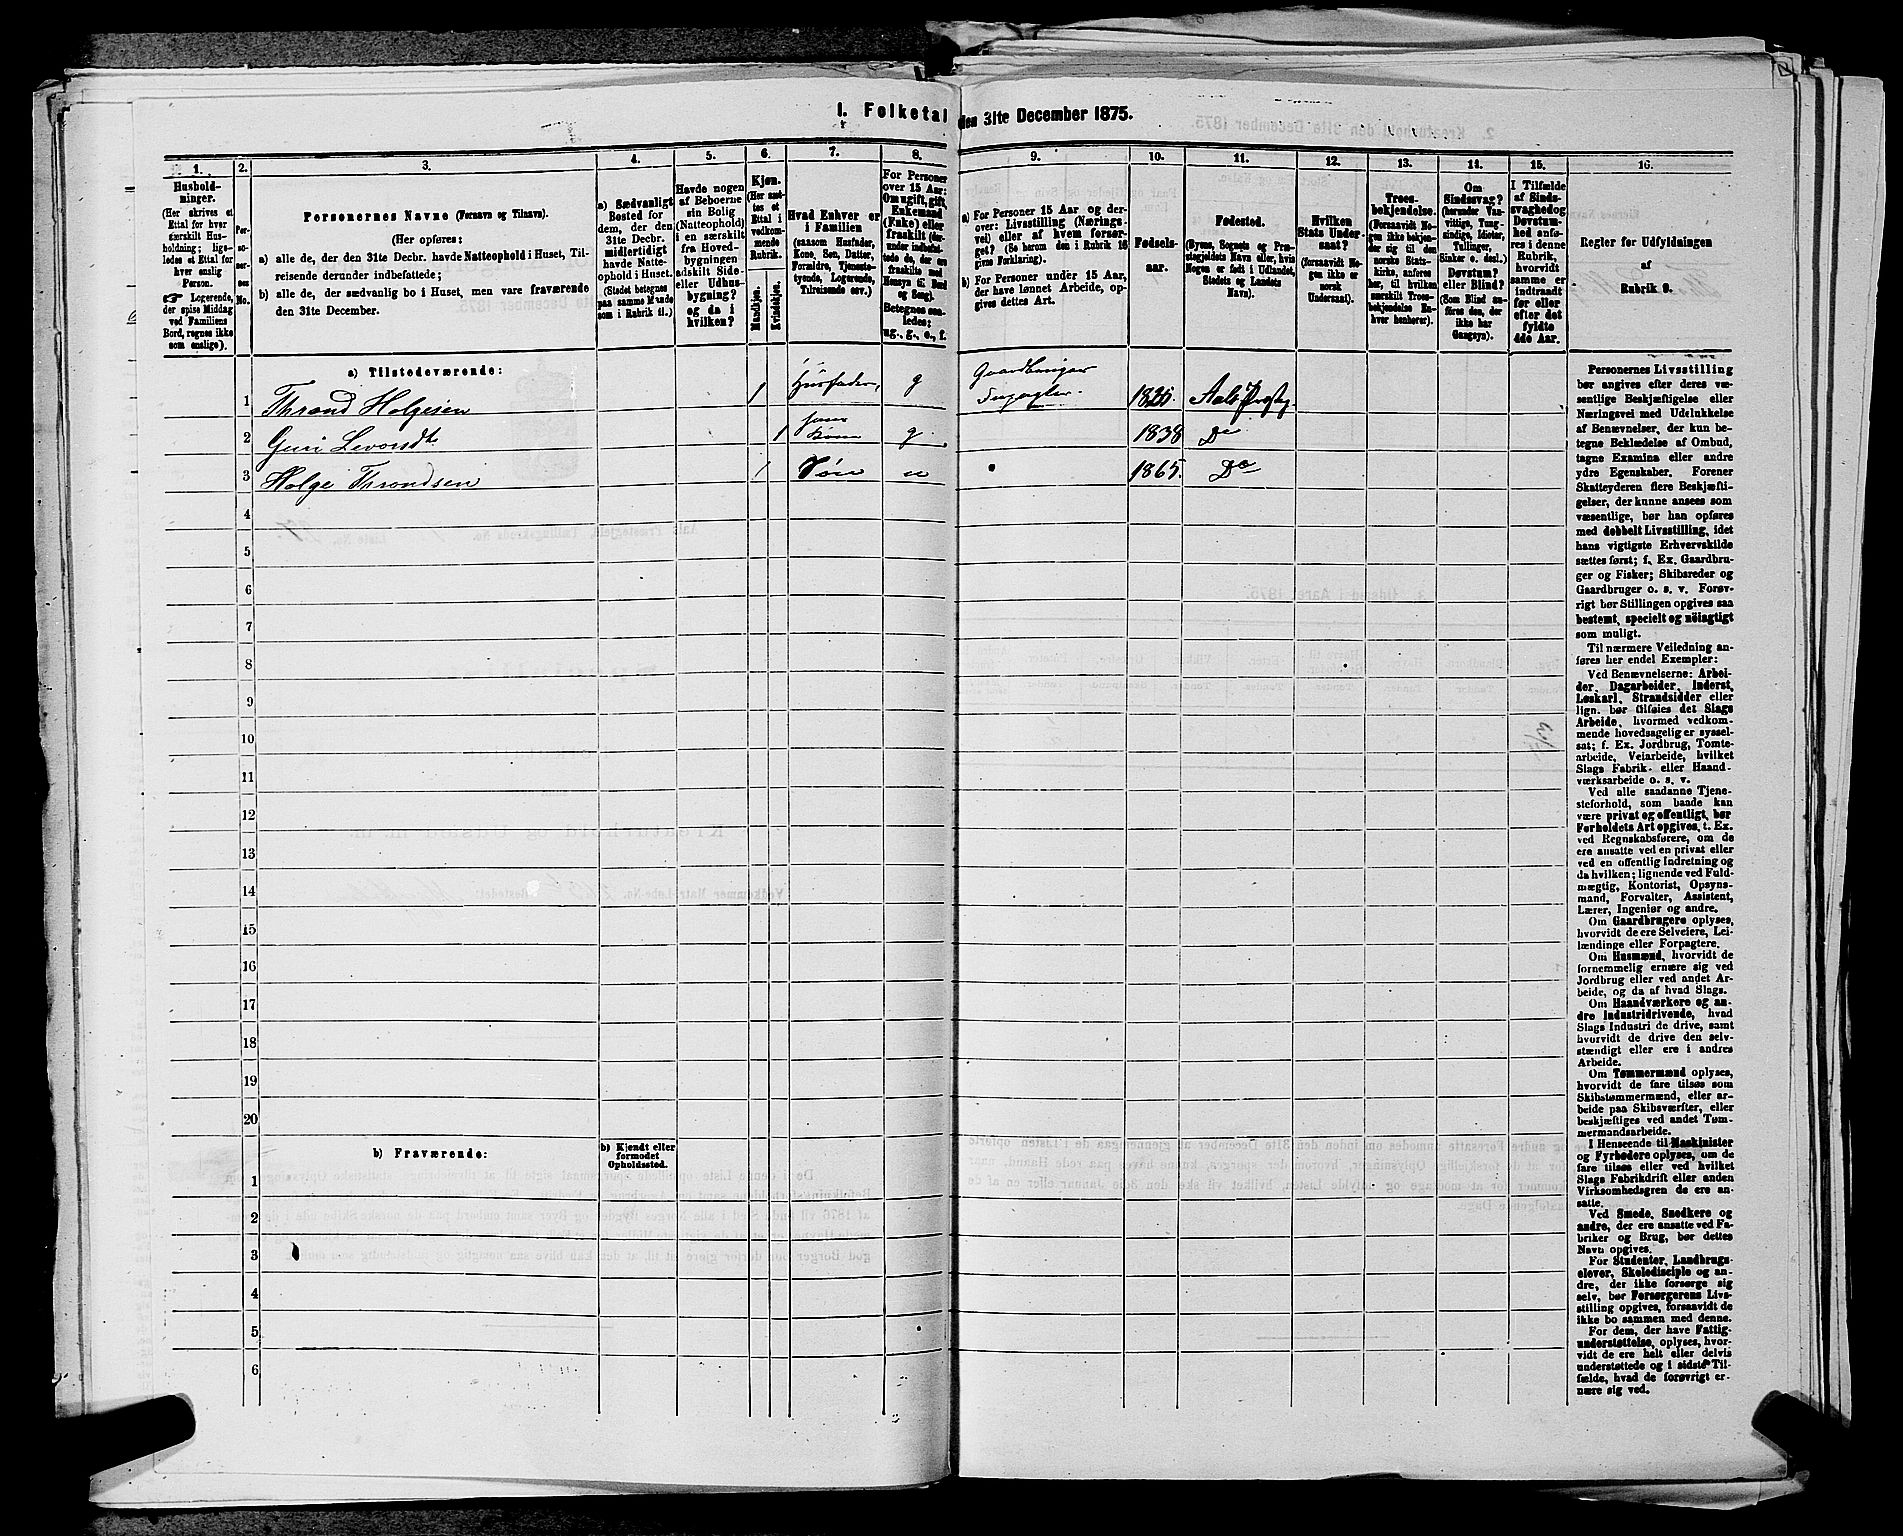 1. Folketal den 31te December 1875.
1. 2. 3. 4. 5. 6. 7. 8. 9. 10. 11. 12. 13. 14. 15. 16.
Hushold-
ninger.
(Her skrives et
Ettal for hver
særskilt Hus-
holdning; lige-
ledes et Ettal for
hver enslig
Person.
☛ Logerende,
der spise Middag
ved Familiens
Bord, regnes ikke
som enslige).
Per-
so-
ner-
nes
No.
Personernes Navne (Fornavn og Tilnavn).
(Her opføres:
a) alle de, der den 31te Decbr. havde Natteophold i Huset, Til-
reisende derunder indbefattede;
b) alle de, der sædvanlig bo i Huset, men vare fraværende
den 31te December.
a) Sædvanligt
Bosted for
dem, der den
31te Decbr.
midlertidigt
havde Natte-
ophold i Huset.
(Stedet betegnes
paa samme Maade
som i Rubrik 11.)
Havde nogen
af Beboerne
sin Bolig
(Natteophold)
i en særskilt
fra Hoved-
bygningen
adskilt Side-
eller Udhus-
bygning?
og da i
hvilken?
Kjøn.
(Her sæt-
tes et
Ettal i
vedkom-
mende
Rubrik.
Mandkjøn.
Kvindekjøn.
Hvad Enhver er
i Familien
(saasom Husfader,
Kone, Søn, Datter,
Forældre, Tjeneste-
tyende, Logerende,
Tilreisende osv.)
For Personer
over 15 Aar:
Om ugift, gift,
Enkemand
(Enke) eller
fraskilt (der-
under indbefat-
tede de, der ere
fraskilte med
Hensyn til Bord
og Seng).
Betegnes saa-
ledes:
ug., g., e., f.
a) For Personer 15 Aar og der-
over: Livsstilling (Nærings-
vei) eller af hvem forsør-
get? (Se herom den i Rubrik 16
givne Forklaring).
b) For Personer under 15 Aar,
der have lønnet Arbeide, op-
gives dettes Art.
Fødsels-
aar.
Fødested.
(Byens, Sognets og Præ-
stegjeldets Navn eller, hvis
Nogen er født i Udlandet,
Stedets og Landets
Navn).
Hvilken
Stats Under-
saat?
(forsaavidt No-
gen ikke er
norsk
Undersaat).
Troes-
bekjendelse.
(Forsaavidt No-
gen ikke bekjen-
der sig til den
norske Stats-
kirke, anføres
her, til hvilken
særskilt Troes-
bekjendelse En-
hver henhører).
Om
Sindssvag?
(herunder Van-
vittige, Tung-
sindige, Idioter,
Tullinger,
Sinker o. desl.)
Døvstum?
eller Blind?
(Som Blind an-
føres den, der
ikke har
Gangsyn).
I Tilfælde
af Sinds-
svaghed og
Døvstum-
hed anfø-
res i denne
Rubrik,
hvorvidt
samme er
indtraadt
før eller
efter det
fyldte
4de Aar.
Regler for Udfyldningen
af
Rubrik 9.
a) Tilstedeværende:
1 Thrond Holgesen 1 Husfader, g Gaardbruger 1825 Aals Præstg.
2 Guri Levorsdt 1 Kone g. 1838 Do
3 Holge Throndsen 1 Søn u 1865. Do
4
5
6
7
8
9
10
11
12
13
14
15
16
17
18
19
20
b) Fraværende:
b) Kjendt eller
formodet
Opholdssted.
1
2
3
4
5
6
Personernes Livsstilling
bør angives efter deres væ-
sentlige Beskjæftigelse eller
Næringsvei med Udelukkelse
af Benævnelser, der kun be-
tegne Beklædelse af Ombud,
tagne Examina eller andre
ydre Egenskaber. Forener
Skatteyderen flere Beskjæfti-
gelser, der kunne ansees som
væsentlige, bør han opføres
med dobbelt Livsstilling, idet
hans vigtigste Erhvervskilde
sættes først; f. Ex. Gaardbru-
ger og Fisker; Skibsreder og
Gaardbruger o. s. v. Forøv-
rigt bør Stillingen opgives saa
bestemt, specielt og nøiagtigt
som muligt.
Til nærmere Veiledning an-
føres her endel Exempler:
Ved Benævnelserne: Arbei-
der, Dagarbeider, Inderst,
Løskarl, Strandsidder eller
lign. bør tilføies det Slags
Arbeide, hvormed vedkom-
mende hovedsagelig er syssel-
sat; f. Ex. Jordbrug, Tomte-
arbeide, Veiarbeide, hvilket
Slags Fabrik- eller Haand-
værksarbeide o. s. v.
Ved alle saadanne Tjene-
steforhold, som baade kan
være privat og offentligt, bør
Forholdets Art opgives, t. Ex.
ved Regnskabsførere, om de
ere ansatte ved en privat eller
ved en offentlig Indretning og
da hvilken; lignende ved Fuld-
mægtig, Kontorist, Opsyns-
mand, Forvalter, Assistent,
Lærer, Ingeniør og andre.
Om Gaardbrugere oplyses,
hvorvidt de ere Selveiere, Lei-
lændinge eller Forpagtere.
Om Husmænd, hvorvidt de
fornemmelig ernære sig ved
Jordbrug eller ved andet Ar-
beide, og da af hvad Slags.
Om Haandværkere og an-
dre Industridrivende, hvad
Slags Industri de drive, samt
hvorvidt de drive den selv-
stændigt eller ere i andres
Arbeide.
Om Tømmermænd oplyses,
hvorvidt de fare tilsøs som
Skibstømmermænd, eller ar-
beide paa Skibsværfter, eller
beskjæftiges ved andet Tøm-
mermandsarbeide.
I Henseende til Maskinister
og Fyrbødere oplyses, om de
fare tilsøs eller ved hvilket
Slags Fabrikdrift eller anden
Virksomhedsgren de ere an-
satte.
Ved Smede, Snedkere og
andre, der ere ansatte ved Fa-
briker og Brug, bør dettes
Navn opgives.
For Studenter, Landbrugs-
elever, Skoledisciple og an-
dre, der ikke forsørge sig
selv, bør Forsørgerens Livs-
stilling opgives, forsaavidt de
ikke bo sammen med denne.
For dem, der have Fattig-
understøttelse, oplyses, hvor-
vidt de ere helt eller delvis
understøttede og i sidste Til-
fælde, hvad de forøvrigt er-
nære sig ved.